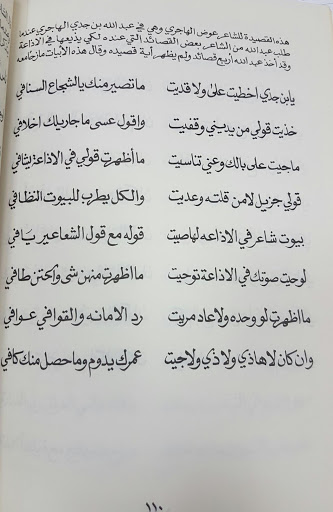 هذه القصيدة للشاعر عوض الهاجري وهي في عبدالله بن جدي الهاجري عندما
طلب عبدالله من الشاعر بعض القصائد التي عنده لكي يذيعها في الاذاعة
وقد أخذ عبدالله أربع قصائد ولم يظهر أية قصيده وقال هذه الأبيات مازحا معه
يابن جدي اخطيت علي ولا قديت ما تصير منك يالشجاع السنافي
خذيت قولي من يديني وقفيت واقول عسى ما جاريلك اخلافي
ماجيت على بالك وعني تناسيت ما أظهرت قولي في الاذاعة يشافي
قولي جزيل لامن قلته وعديت والكل يطرب للبيوت النظافي
بيوت شاعر في الاذاعه لهاصيت قوله مع قول الشعاعير بافي
لوحيت صوتك في الاذاعة توحيت ما اظهرت منهن شي واكتن طافي
ما اظهرت لو وحده ولا عاد مريت رد الامانه والقوافي عوافي
وان كان لاهاذي ولا ذي ولاجيت عمرك يدوم وما حصل منك كافي
١١٠